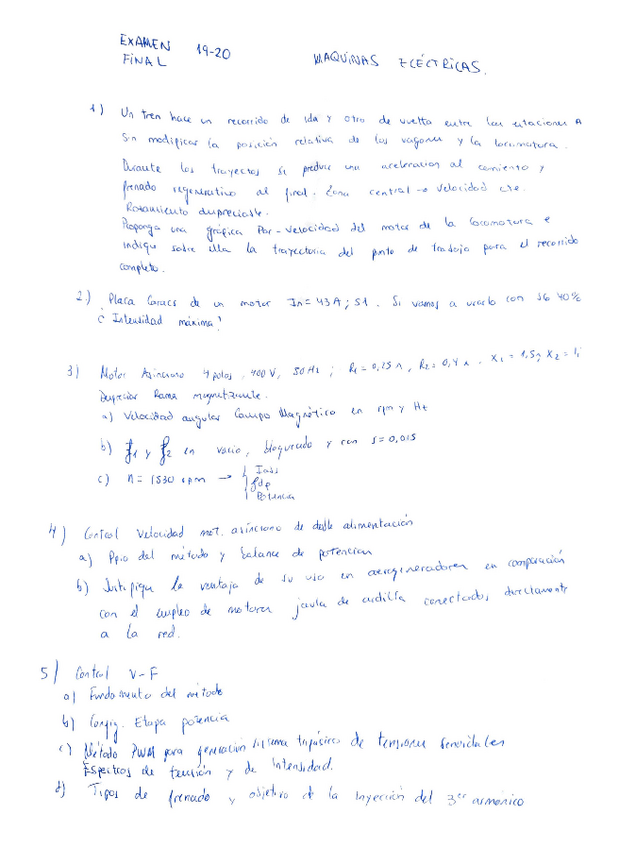 EXAMEN 19-20 MAQUINAS ELÉCTRICAS.
FINAL
1) Un tren hace un recorrido de ida y otro de vuelta entre las estaciones A
Sin modificar la posición relativa de los vagones y la locomotora.
Durante los trayectos se produce una aceleracion al comienzo y
frenado regenerativo al final. Zona central → velocidad cte.
Rozamiento despreciable.
Proponga una gráfica Par-Velocidad del motor de la locomotora e
indique sobre ella la trayectoria del punto de trabajo para el recorrido
completo.
2) Placa Caracs de un motor In = 43A ; S1. Si vamos a usarlo con S6 40%
¿ Intensidad máxima?
3) Motor Asíncrono 4 polos, 400V, 50Hz ; R1 = 0,25 Ω, R2 = 0,4 Ω, X1 = 1,5Ω X2 = 1,
Despreciar Rama magnetizante.
a) Velocidad angular Campo Magnético en rpm y Hz
b) f1 y f2 en vacio, bloqueado y con s = 0,015
c) n = 1530 rpm → { I
fdp
Potencia
4) Control Velocidad mot. asíncrono de doble alimentación
a) Ppio del método y balance de potencias
b) Justifique la ventaja de su uso en aerogeneradores en comparación
con el empleo de motores jaula de ardilla conectados directamente
a la red.
5) Control V-F
a) Fundamento del método
b) Config. Etapa potencia
c) Método PWM para generación sistema trifásico de tensiones senoidales
Espectros de tensión y de intensidad.
d) Tipos de frenado y objetivo de la inyección del 3er armónico